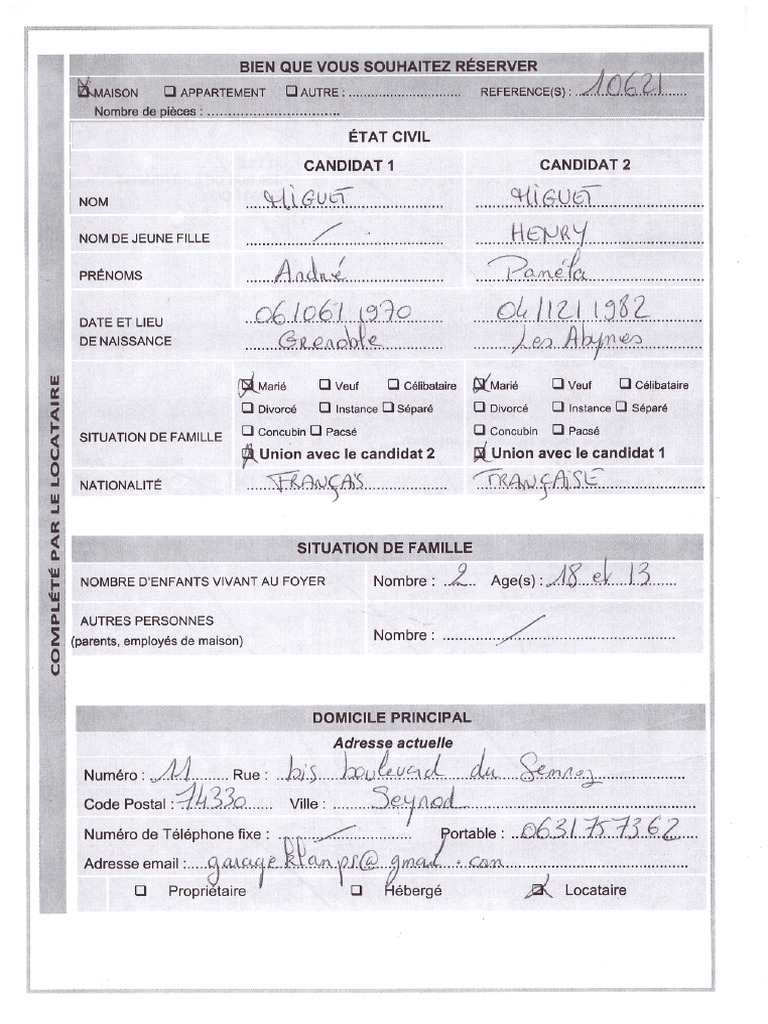 COMPLÉTÉ PAR LE LOCATAIRE
BIEN QUE VOUS SOUHAITEZ RÉSERVER
MAISON APPARTEMENT AUTRE : REFERENCE(S) : 10621
Nombre de pièces :
ÉTAT CIVIL
CANDIDAT 1 CANDIDAT 2
NOM MIGUET MIGUET
NOM DE JEUNE FILLE / HENRY
PRÉNOMS André Paméla
DATE ET LIEU 06/06/1970 04/12/1982
DE NAISSANCE Grenoble Les Abymes
Marié Veuf Célibataire Marié Veuf Célibataire
Divorcé Instance Séparé Divorcé Instance Séparé
SITUATION DE FAMILLE Concubin Pacsé Concubin Pacsé
Union avec le candidat 2 Union avec le candidat 1
NATIONALITÉ FRANÇAIS FRANÇAISE
SITUATION DE FAMILLE
NOMBRE D'ENFANTS VIVANT AU FOYER Nombre : 2 Age(s) : 18 et 13
AUTRES PERSONNES
(parents, employés de maison) Nombre : /
DOMICILE PRINCIPAL
Adresse actuelle
Numéro : 11 Rue : bis boulevard du Semnoz
Code Postal : 74330 Ville : Seynod
Numéro de Téléphone fixe : / Portable : 0631757362
Adresse email : @gmail.com
Propriétaire Hébergé Locataire